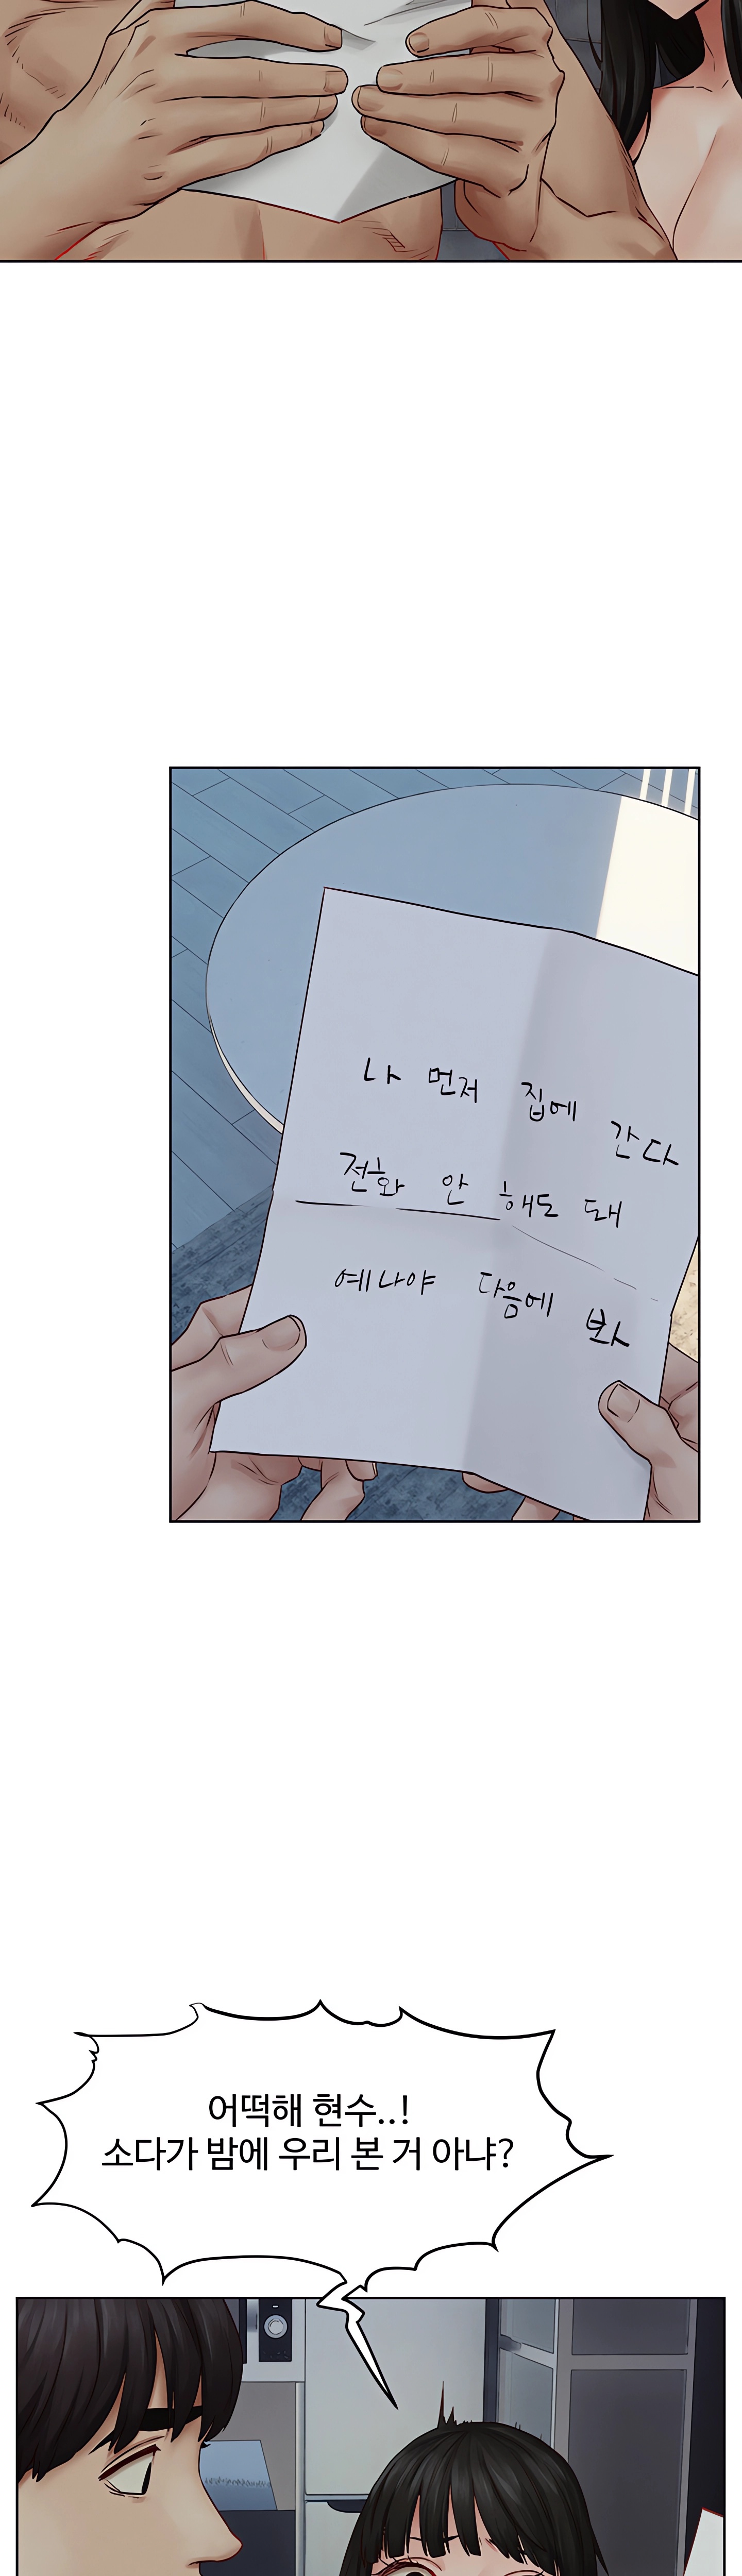 나 먼저 집에 간다
전화 안 해도 돼
예나야 다음에 봐
어떡해 현수..!
소다가 밤에 우리 본 거 아냐?